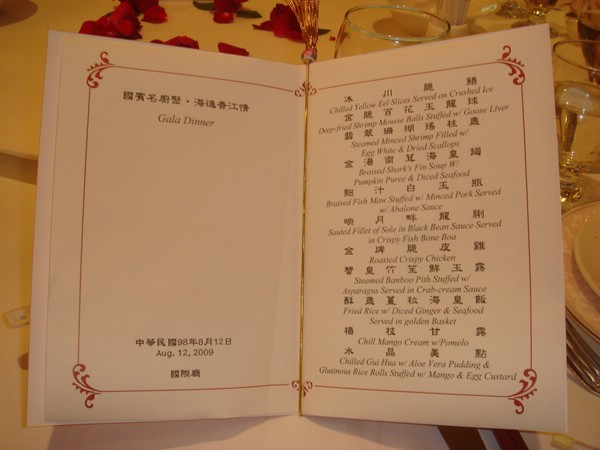 國賓名廚聚・海逸香江情
Gala Dinner
中華民國98年8月12日
Aug. 12, 2009
國際廳
冰川脆鱔
Chilled Yellow Eel Slices Served on Crushed Ice
金脆百花玉龍球
Deep-fried Shrimp Mousse Balls Stuffed w/ Goose Liver
翡翠珊瑚瑤柱盞
Steamed Minced Shrimp Filled w/
Egg White & Dried Scallops
金湯南茸海皇翅
Braised Shark's Fin Soup W/
Pumpkin Puree & Diced Seafood
鮑汁白玉瓶
Braised Fish Maw Stuffed w/ Minced Pork Served
w/ Abalone Sauce
月畔龍脷
Sauted Fillet of Sole in Black Bean Sauce Served
in Crispy Fish Bone Boa
金牌脆皮雞
Roasted Crispy Chicken
蟹皇竹笙鮮玉露
Steamed Banboo Pith Stuffed w/
Asparagus Served in Crab-cream Sauce
酥盞薑粒海皇飯
Fried Rice w/ Diced Ginger & Seafood
Served in golden Basket
楊枝甘露
Chill Mango Cream w/Pomelo
水晶美點
Chilled Gui Hua w/ Aloe Vera Pudding &
Glutinous Rice Rolls Stuffed w/ Mango & Egg Custard